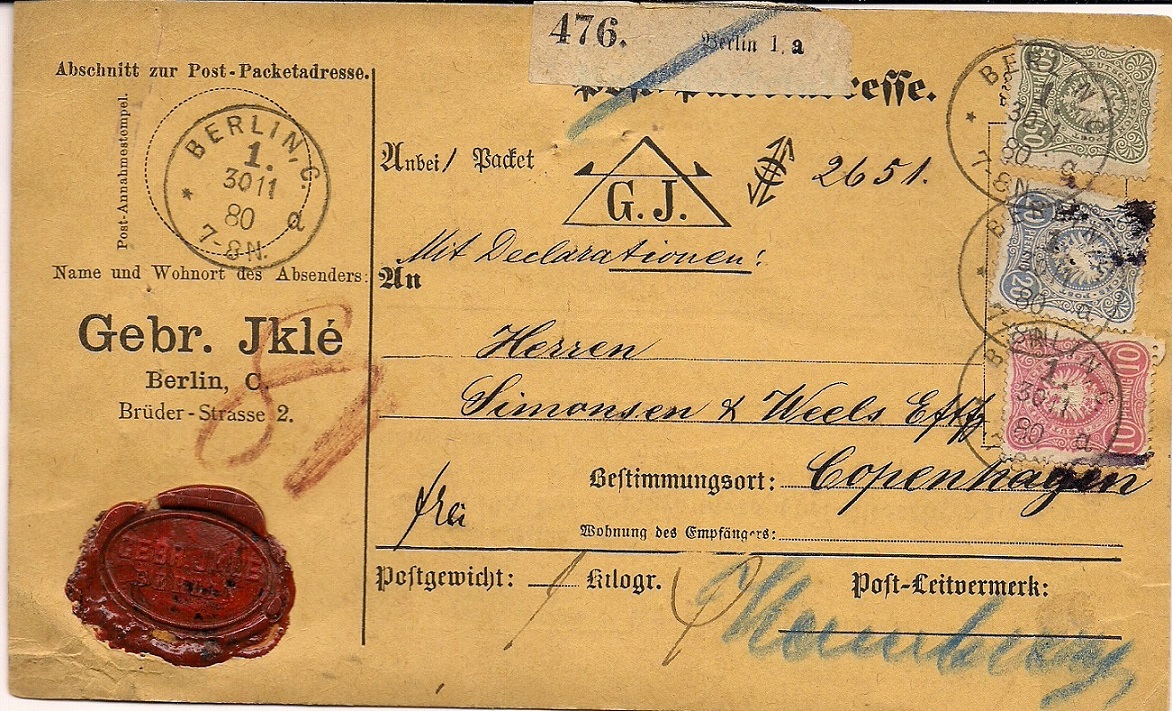 476. Berlin 1. a
Abschnitt zur Post-Packetadresse.
Post-Annahmestempel.
BERLIN, C.
1.
30 11
80
7-8N.
a
Name und Wohnort des Absenders:
Gebr. Jklé
Berlin, C.
Brüder-Strasse 2.
GEBR. JKLE
BERLIN
Anbei 1 Packet
G. J.
2651.
Mit Declarationen:
An
Herren
Simonsen & Weels Eftf
Bestimmungsort: Copenhagen
frei
Wohnung des Empfängers:
Postgewicht: 1 Kilogr.
Post-Leitvermerk:
Hamburg
BERLIN C
30 11
80
7-8N.
a
50
50
BERLIN C
80
a
20
20 PFENNIG
BERLIN C.
1.
30 11
80
a
10
10 PFENNIG